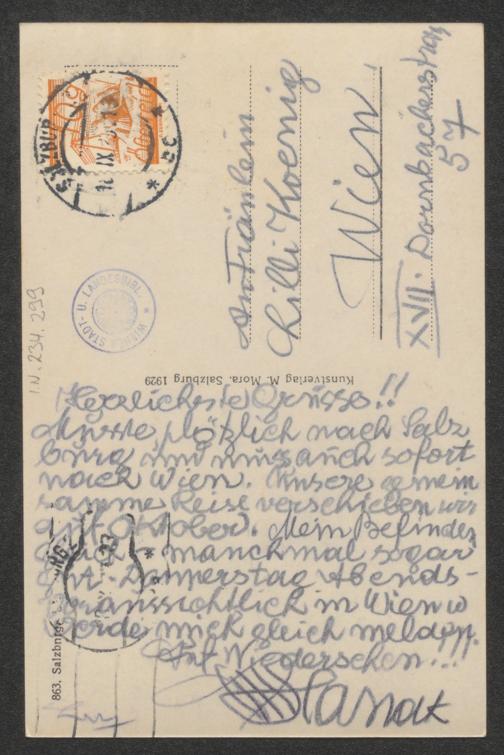 Herzlichste Grüsse!!
Musste plötzlich nach Salz
burg und muss auch sofort
nach Wien. Unsere gemein
same Reise verschieben wir
auf Oktober. Mein Befinden
manchmal sogar
gut. Donnerstag Abends -
voraussichtlich in Wien u
werde mich gleich melden.
Auf Wiedersehen!!!
Hanak
an Fräulein
Lilli Koenig
Wien
XVII. Dornbacherstraße
57
Kunstverlag M. Mora. Salzburg 1929
863. Salzburg
I.N. 234.299
WIENER STADT- U. LANDESBIBL.
SALZBURG
IX